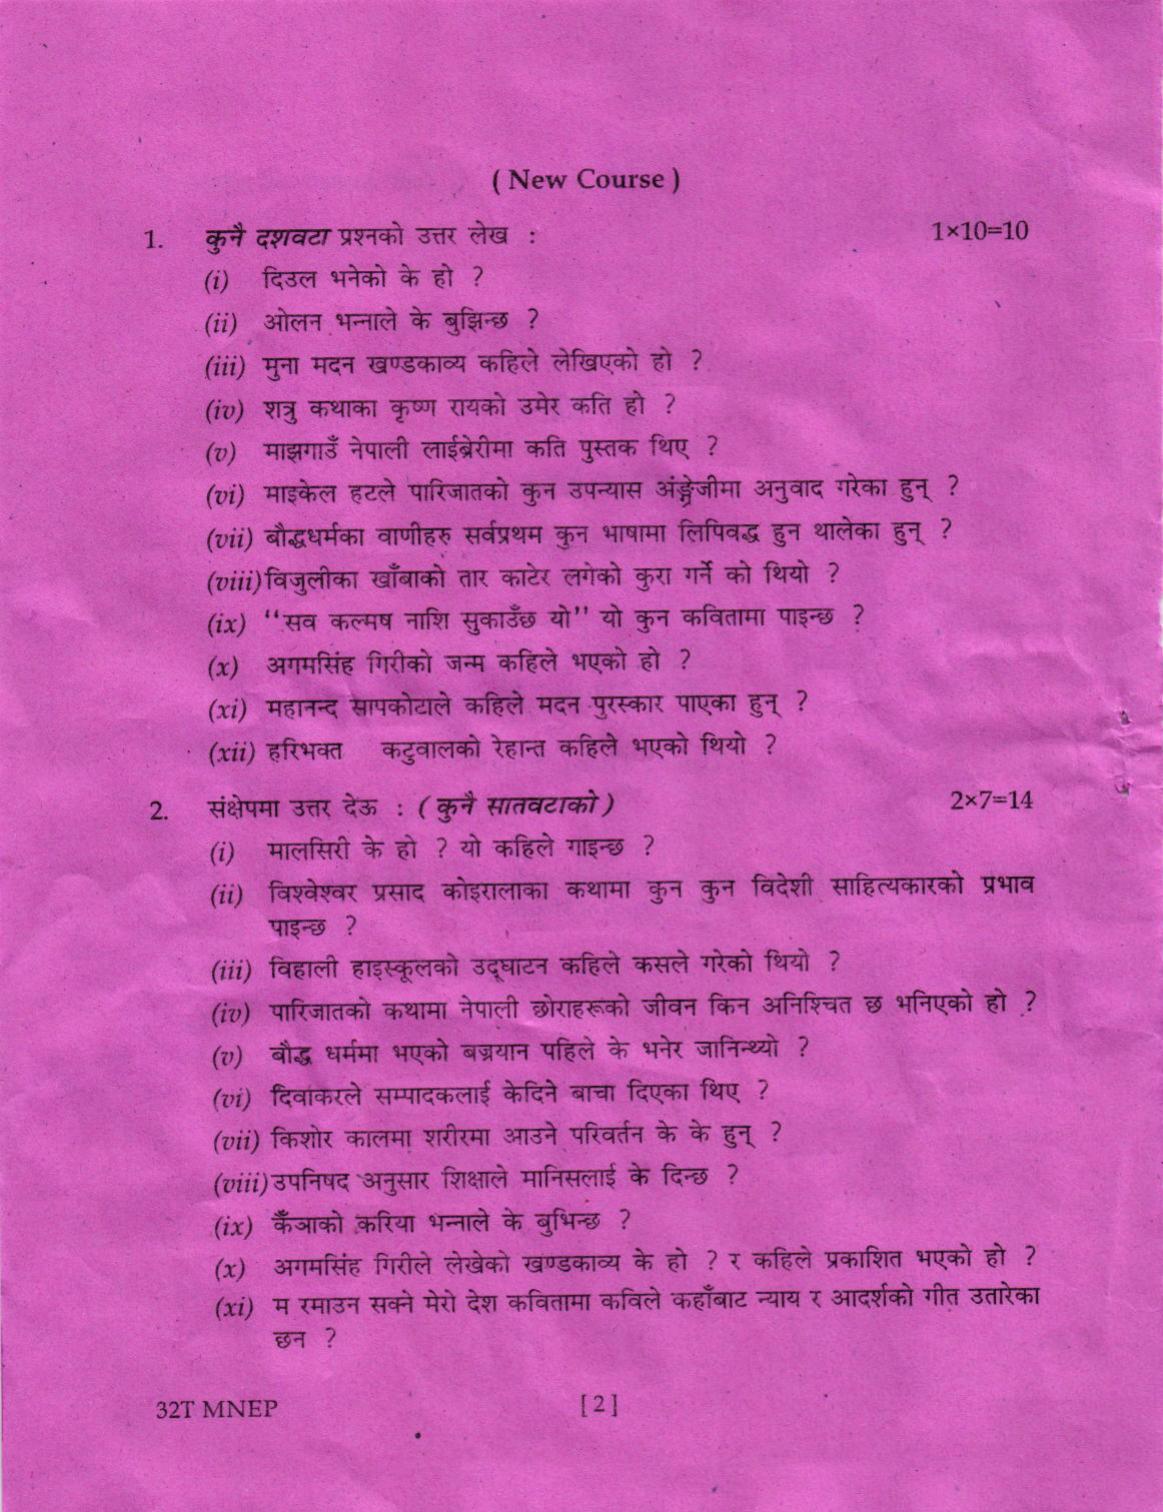 ( New Course )
1. कुनै दशवटा प्रश्नको उत्तर लेख : 1×10=10
(i) दिउल भनेको के हो ?
(ii) ओलन भन्नाले के बुझिन्छ ?
(iii) मुना मदन खण्डकाव्य कहिले लेखिएको हो ?
(iv) शत्रु कथाका कृष्ण रायको उमेर कति हो ?
(v) माझगाउँ नेपाली लाईब्रेरीमा कति पुस्तक थिए ?
(vi) माइकेल हटले पारिजातको कुन उपन्यास अंङ्ग्रेजीमा अनुवाद गरेका हुन् ?
(vii) बौद्धधर्मका वाणीहरु सर्वप्रथम कुन भाषामा लिपिवद्ध हुन थालेका हुन् ?
(viii) विजुलीका खाँबाको तार काटेर लगेको कुरा गर्ने को थियो ?
(ix) ‘‘सव कल्मष नाशि सुकाउँछ यो’’ यो कुन कवितामा पाइन्छ ?
(x) अगमसिंह गिरीको जन्म कहिले भएको हो ?
(xi) महानन्द सापकोटाले कहिले मदन पुरस्कार पाएका हुन् ?
(xii) हरिभक्त कटुवालको रेहान्त कहिले भएको थियो ?
2. संक्षेपमा उत्तर देऊ : ( कुनै सातवटाको ) 2×7=14
(i) मालसिरी के हो ? यो कहिले गाइन्छ ?
(ii) विश्वेश्वर प्रसाद कोइरालाका कथामा कुन कुन विदेशी साहित्यकारको प्रभाव
पाइन्छ ?
(iii) विहाली हाइस्कूलको उद्घाटन कहिले कसले गरेको थियो ?
(iv) पारिजातको कथामा नेपाली छोराहरूको जीवन किन अनिश्चित छ भनिएको हो ?
(v) बौद्ध धर्ममा भएको बज्रयान पहिले के भनेर जानिन्थ्यो ?
(vi) दिवाकरले सम्पादकलाई केदिने बाचा दिएका थिए ?
(vii) किशोर कालमा शरीरमा आउने परिवर्तन के के हुन् ?
(viii) उपनिषद अनुसार शिक्षाले मानिसलाई के दिन्छ ?
(ix) कैंञाको करिया भन्नाले के बुभिन्छ ?
(x) अगमसिंह गिरीले लेखेको खण्डकाव्य के हो ? र कहिले प्रकाशित भएको हो ?
(xi) म रमाउन सक्ने मेरो देश कवितामा कविले कहाँबाट न्याय र आदर्शको गीत उतारेका
छन ?
32T MNEP [ 2 ]